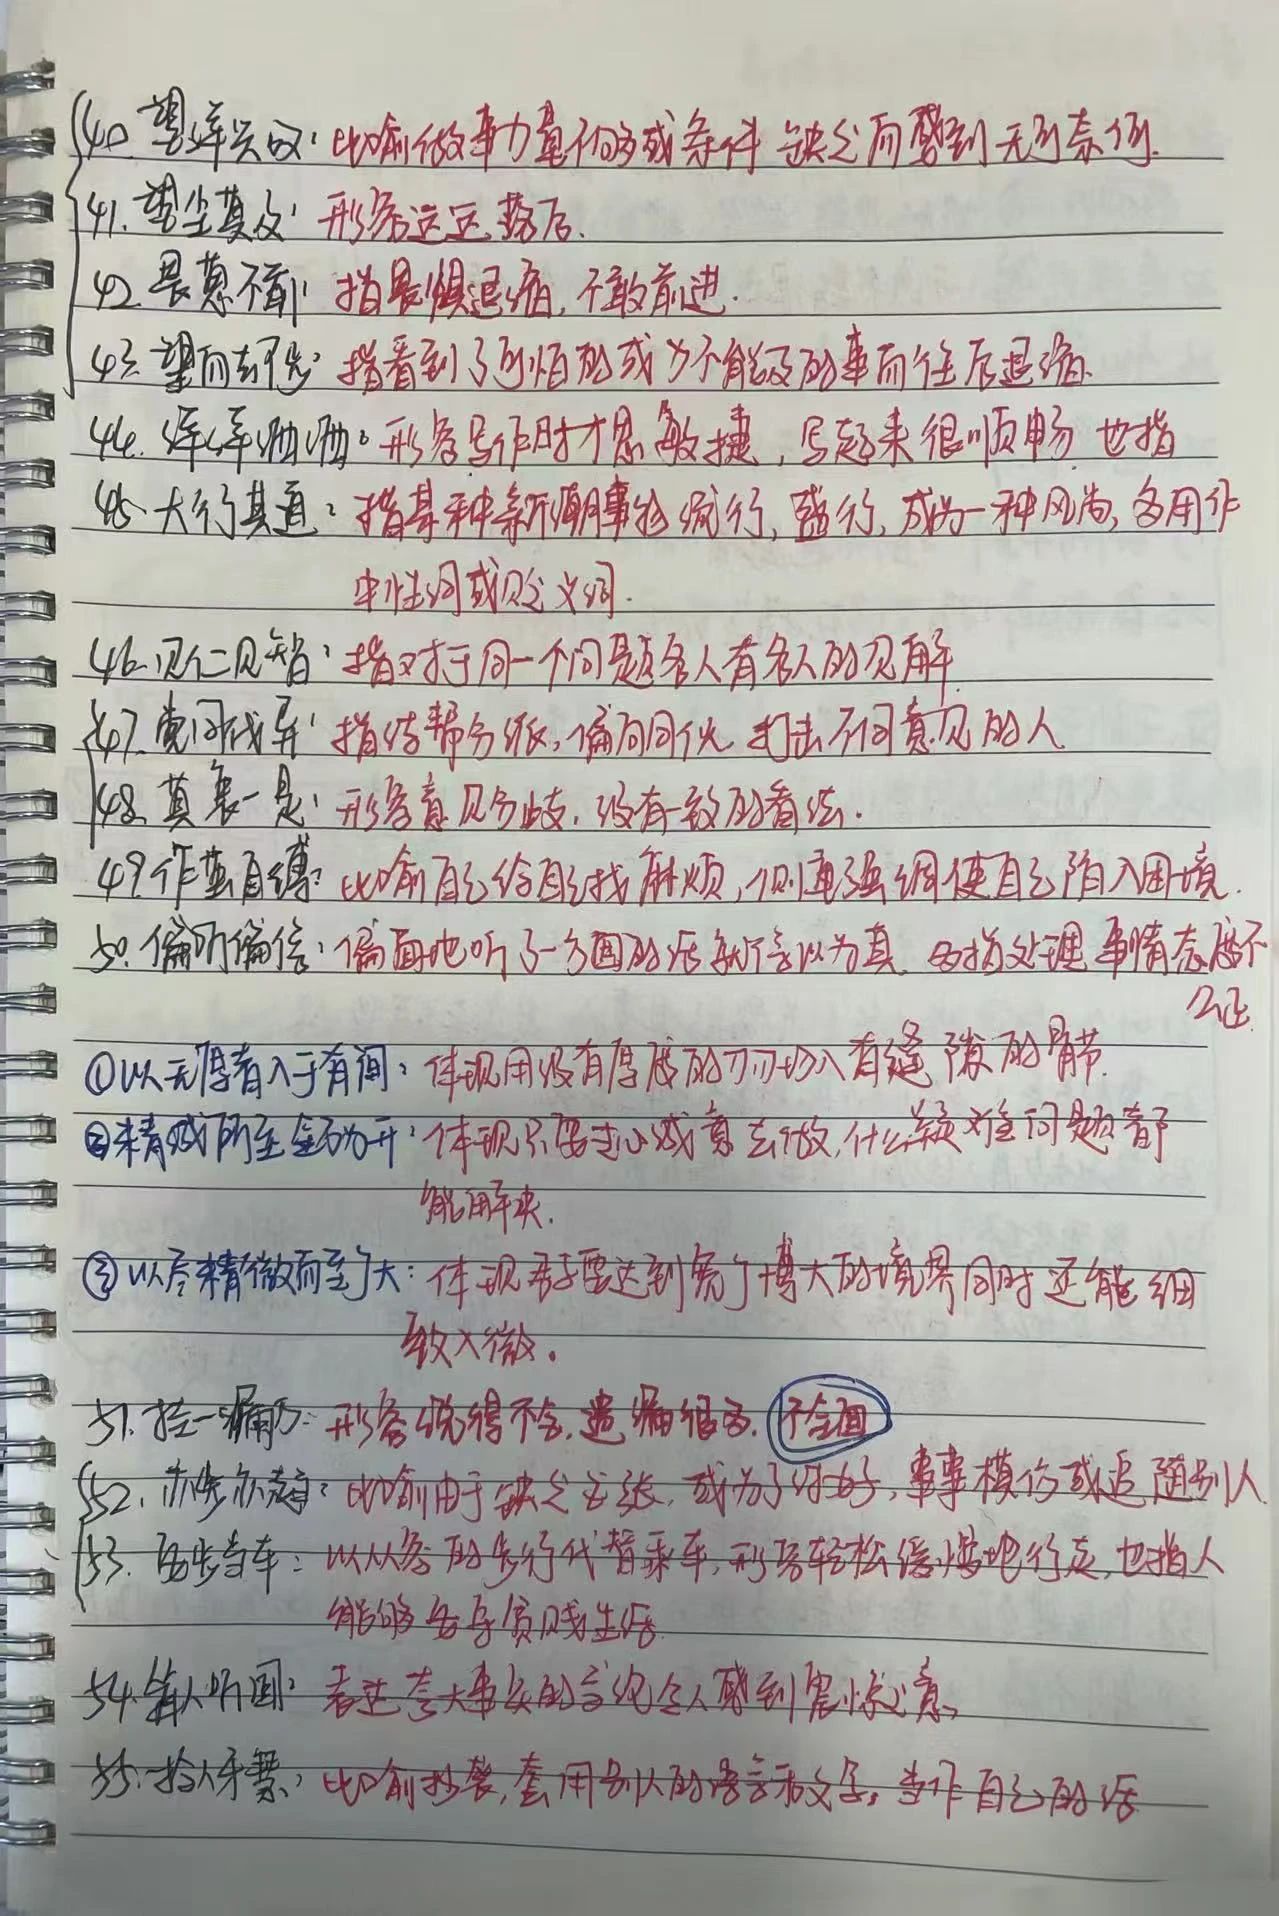 40. 望洋兴叹：比喻做事力量不够或条件缺乏而感到无可奈何.
41. 望尘莫及：形容远远落后.
42. 畏葸不前：指畏惧退缩，不敢前进.
43. 望而却步：指看到了可怕的或力不能及的事而往后退缩.
44. 洋洋洒洒：形容写作时才思敏捷，写起来很顺畅 也指
45. 大行其道：指某种新潮事物流行，盛行，成为一种风尚，多用作
中性词或贬义词.
46. 见仁见智：指对于同一个问题各人有各人的见解
47. 党同伐异：指结帮分派，偏向同伙 打击不同意见的人
48. 莫衷一是：形容意见分歧，没有一致的看法.
49. 作茧自缚：比喻自己给自己找麻烦，侧重强调使自己陷入困境.
50. 偏听偏信：偏面地听了一方面的话就信以为真 多指处理事情态度不
公正
①以无厚者入于有间：体现用没有厚度的刀刃切入有缝隙的骨节.
②精诚所至金石为开：体现只要诚心诚意去做，什么疑难问题都
能解决.
③以尽精微而至广大：体现君子要达到宽广博大的境界同时还能细
致入微。
51. 挂一漏万：形容说得不全，遗漏很多. 不全面
52. 亦步亦趋：比喻由于缺乏主张，或为了讨好，事事模仿或追随别人
53. 安步当车：以从容的步行代替乘车，形容轻松缓慢地行走，也指人
能够安守贫贱生活
54. 骇人听闻：表述夸大事实的言论令人感到震惊之意
55. 拾人牙慧：比喻抄袭，套用别人的语言和文字，当作自己的话